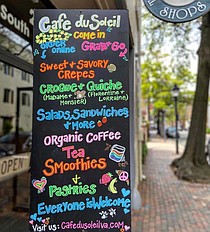 Cafe du Soleil
come in
order online
Grab & Go
Sweet & Savory
Crepes
Croque & Quiche
(Madame & Monsier)
(Florentine & Lorraine)
Salads, Sandwiches
& More
Organic Coffee
Tea
Smoothies
&
Pastries
Everyone is Welcome
Visit us: cafedusoleilva.com
South
OPEN
SHOPS